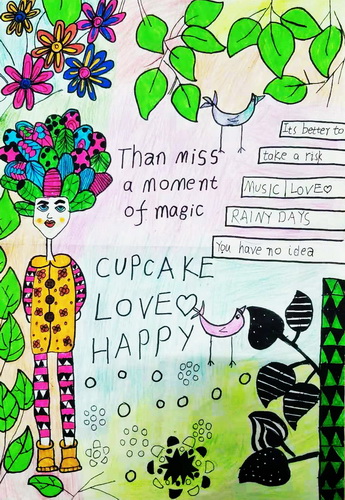 Its better to
take a risk
Than miss
a moment
of magic
MUSIC | LOVE♡
RAINY DAYS
You have no idea
CUPCAKE
LOVE♡
HAPPY